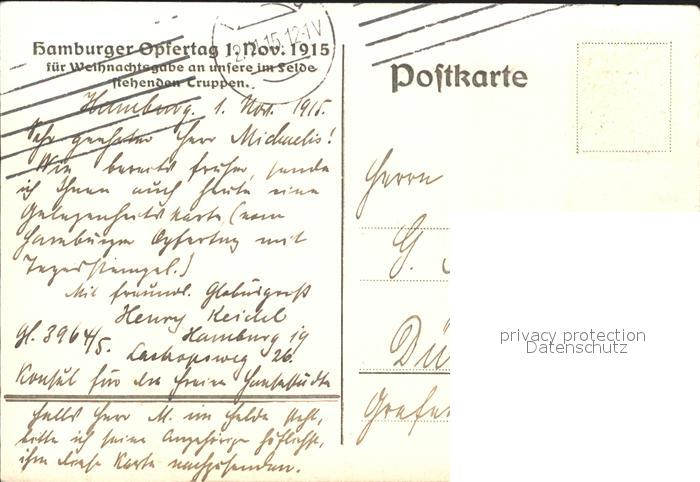 Hamburger Opfertag 1. Nov. 1915
für Weihnachtsgabe an unsere im Felde
stehenden Truppen.
Postkarte
Hamburg, 1. Nov. 1915.
Sehr geehrter Herr Michaelis!
Wie bereits früher, sende
ich Ihnen auch heute eine
Gelegenheitskarte (vom
Hamburger Opfertag mit
Tagesstempel.)
Mit freundl. Globusgruß
Henry Keidel
Gl. 3964/5. Hamburg 19
26.
Konsul für die freien Hansestädte
Falls Herr M. im Felde steht,
bitte ich seine Angehörige höflichst,
ihm diese Karte nachzusenden.
Herrn
G.
Dü
Grafe
privacy protection
Datenschutz